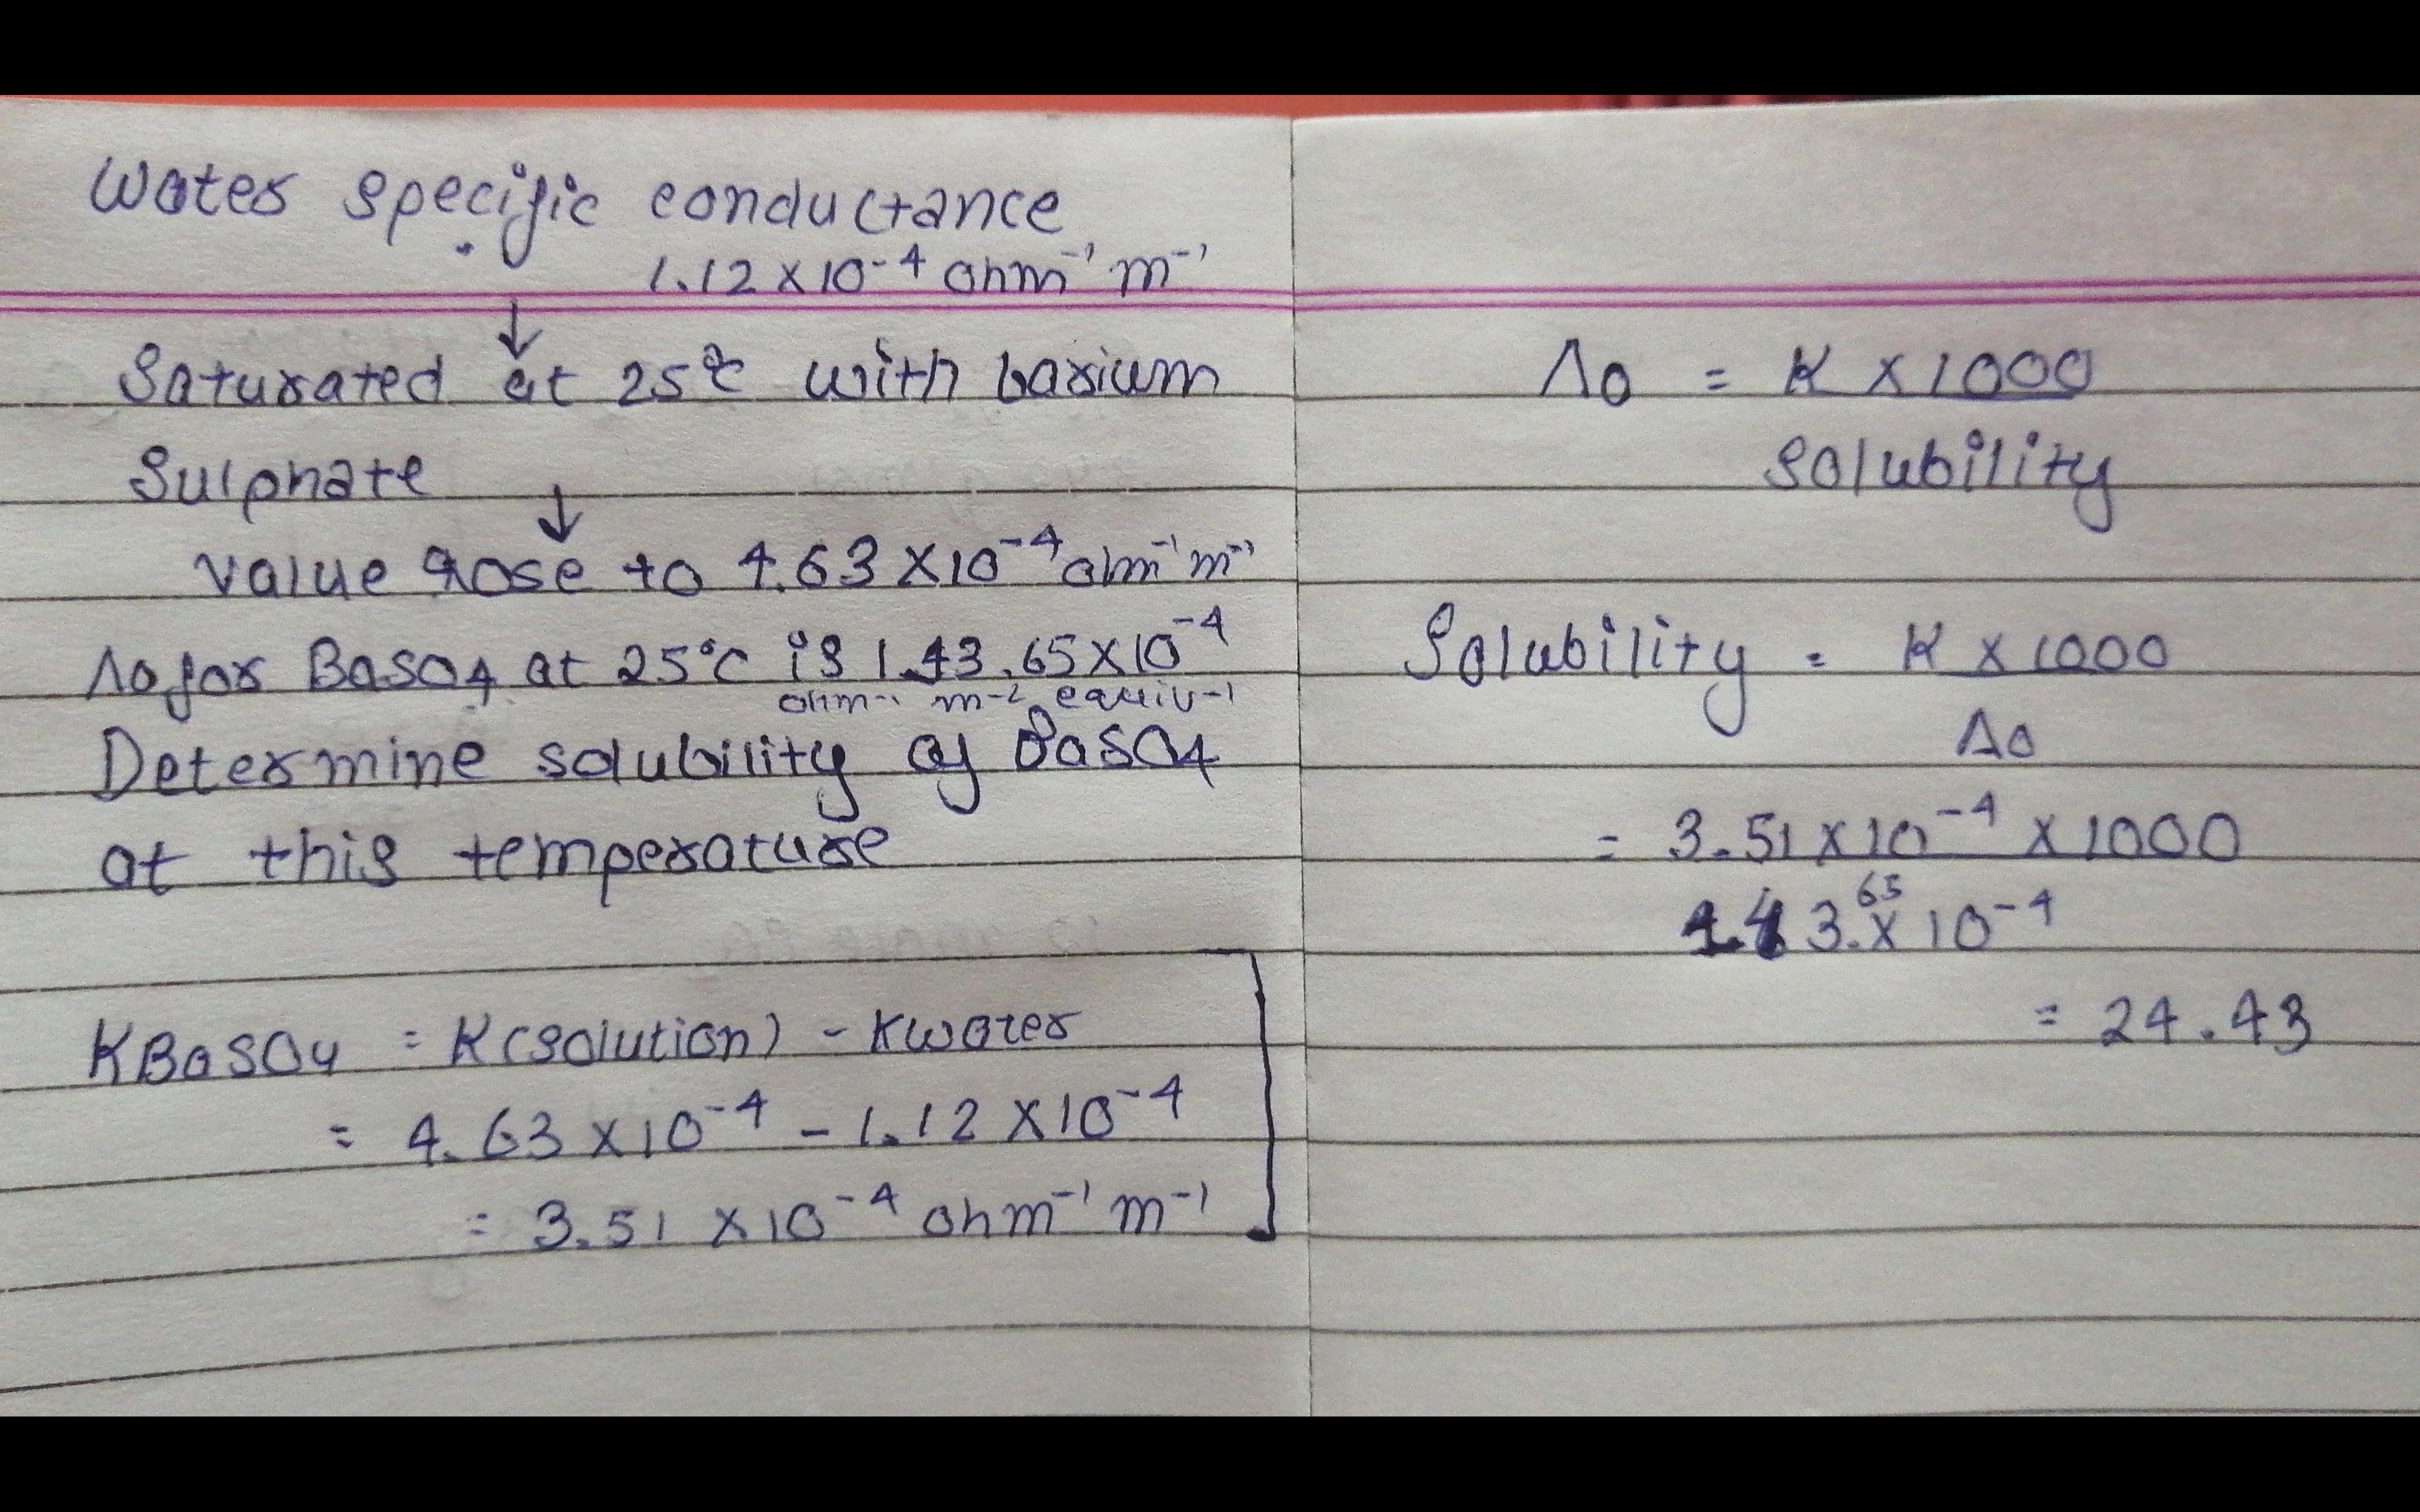 Water specific conductance
1.12 x 10-⁴ ohm⁻¹ m⁻¹
↓
Saturated at 25°C with barium
Sulphate
↓
value rose to 4.63 X10⁻⁴ ohm⁻¹ m⁻¹
Λo for BaSO4 at 25°C is 1.43.65X10⁻⁴
ohm-1 m-2 equiv-1
Determine solubility of BaSO4
at this temperature
KBaSO4 = K(solution) - Kwater
= 4.63 x10⁻⁴ - 1.12 X10⁻⁴
= 3.51 x10⁻⁴ ohm⁻¹ m⁻¹
Λo = K X 1000
Solubility
Solubility = K X 1000
Λo
= 3.51 x 10⁻⁴ x 1000
143.65 x 10⁻⁴
= 24.43